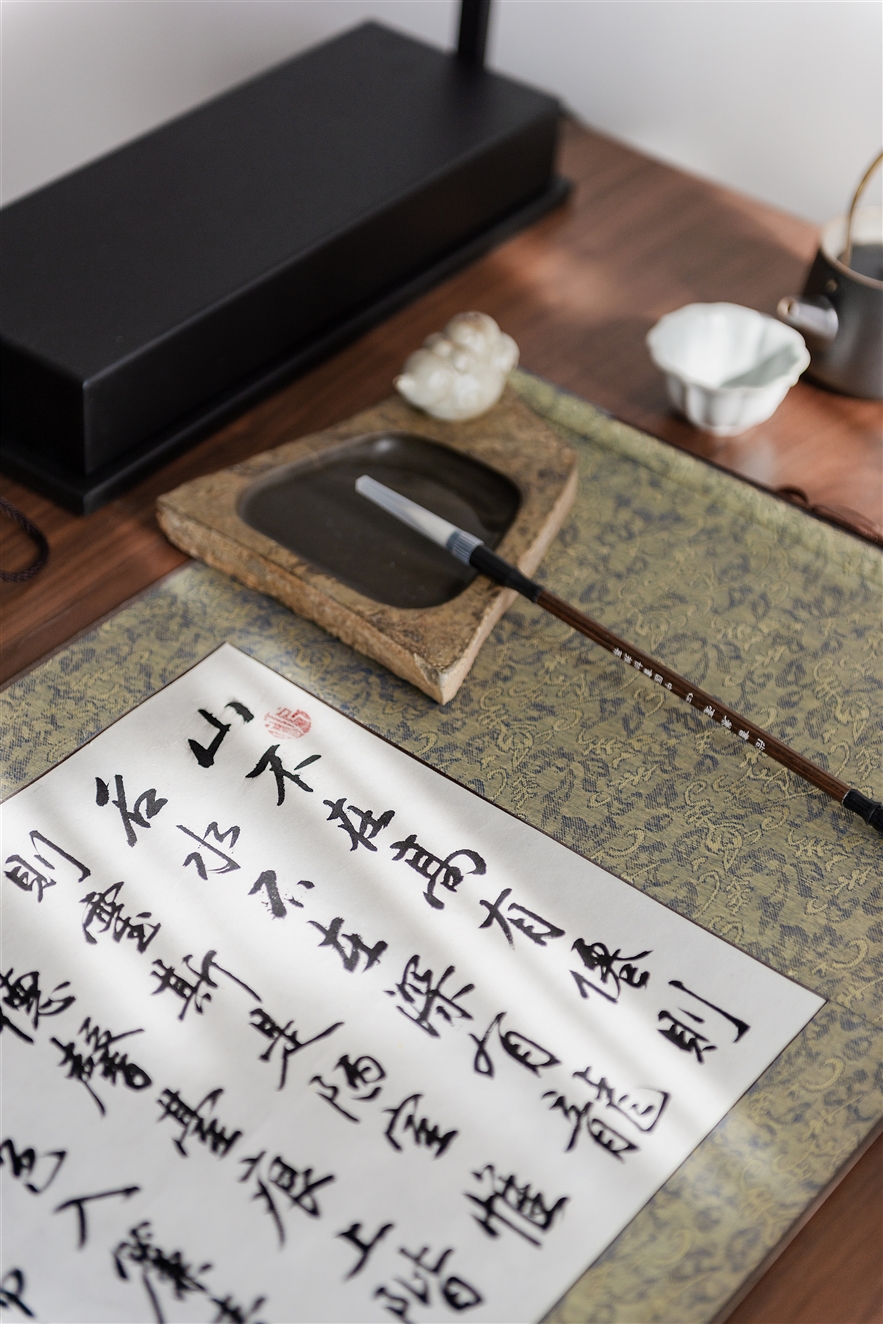 山不在高有僊則
名水不在深有龍
則靈斯是陋室惟
德馨臺痕上階
色入簾青